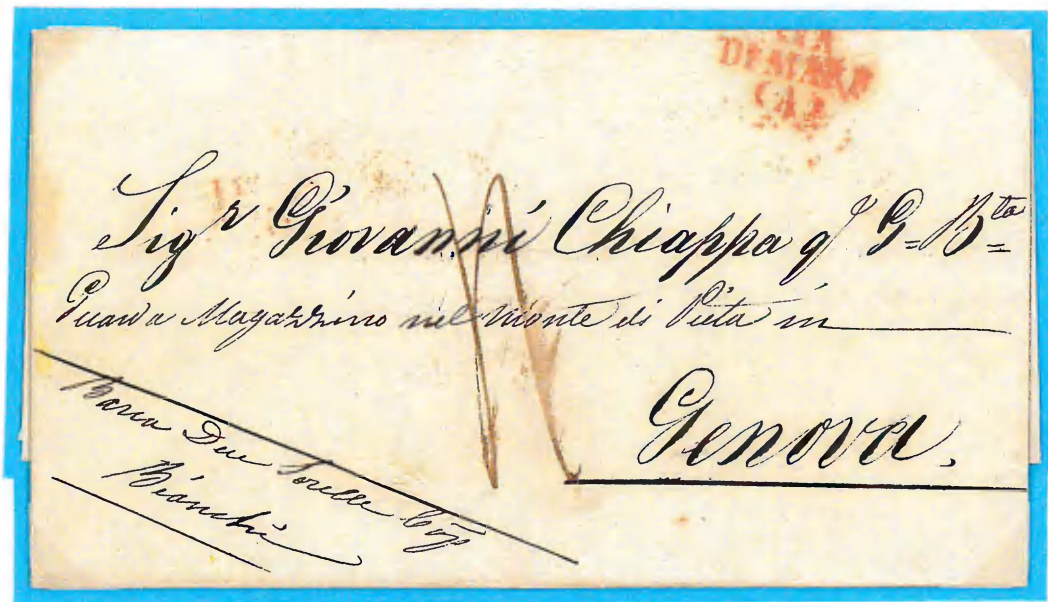 VIA
DI MARE
(A)
Sig.r Giovanni Chiappa q G=B=ta
Guarda Magazzino nel Monte di Pietà in
Genova.
Barca Due Sorelle Cap
Bianchi